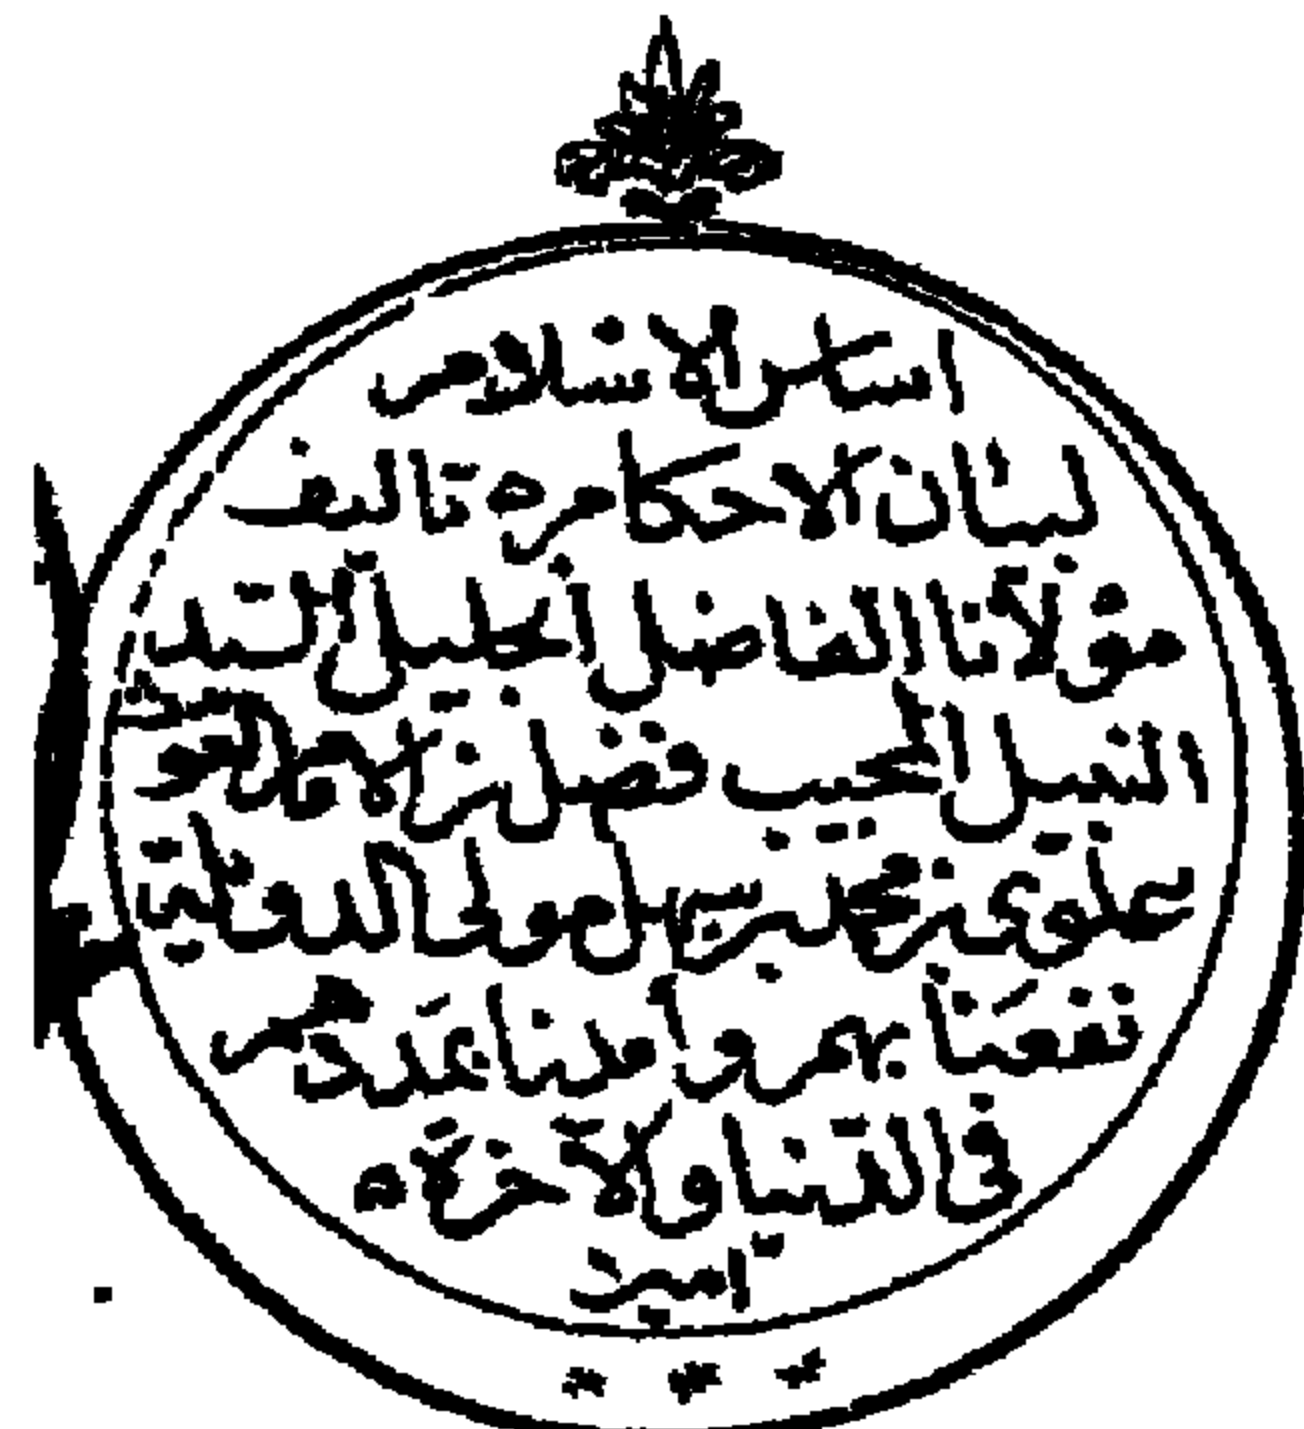 اساس الاسلام
لبيان الاحكام ه تاليف
مولانا الفاضل الجليل السيد
النبيل الحبيب فضل بن الامام الغو
علوي بن محمد بن سهل مولى الدويلة
نفعنا بهم وامدنا بمددهم
في الدنيا والآخرة ه
آمين